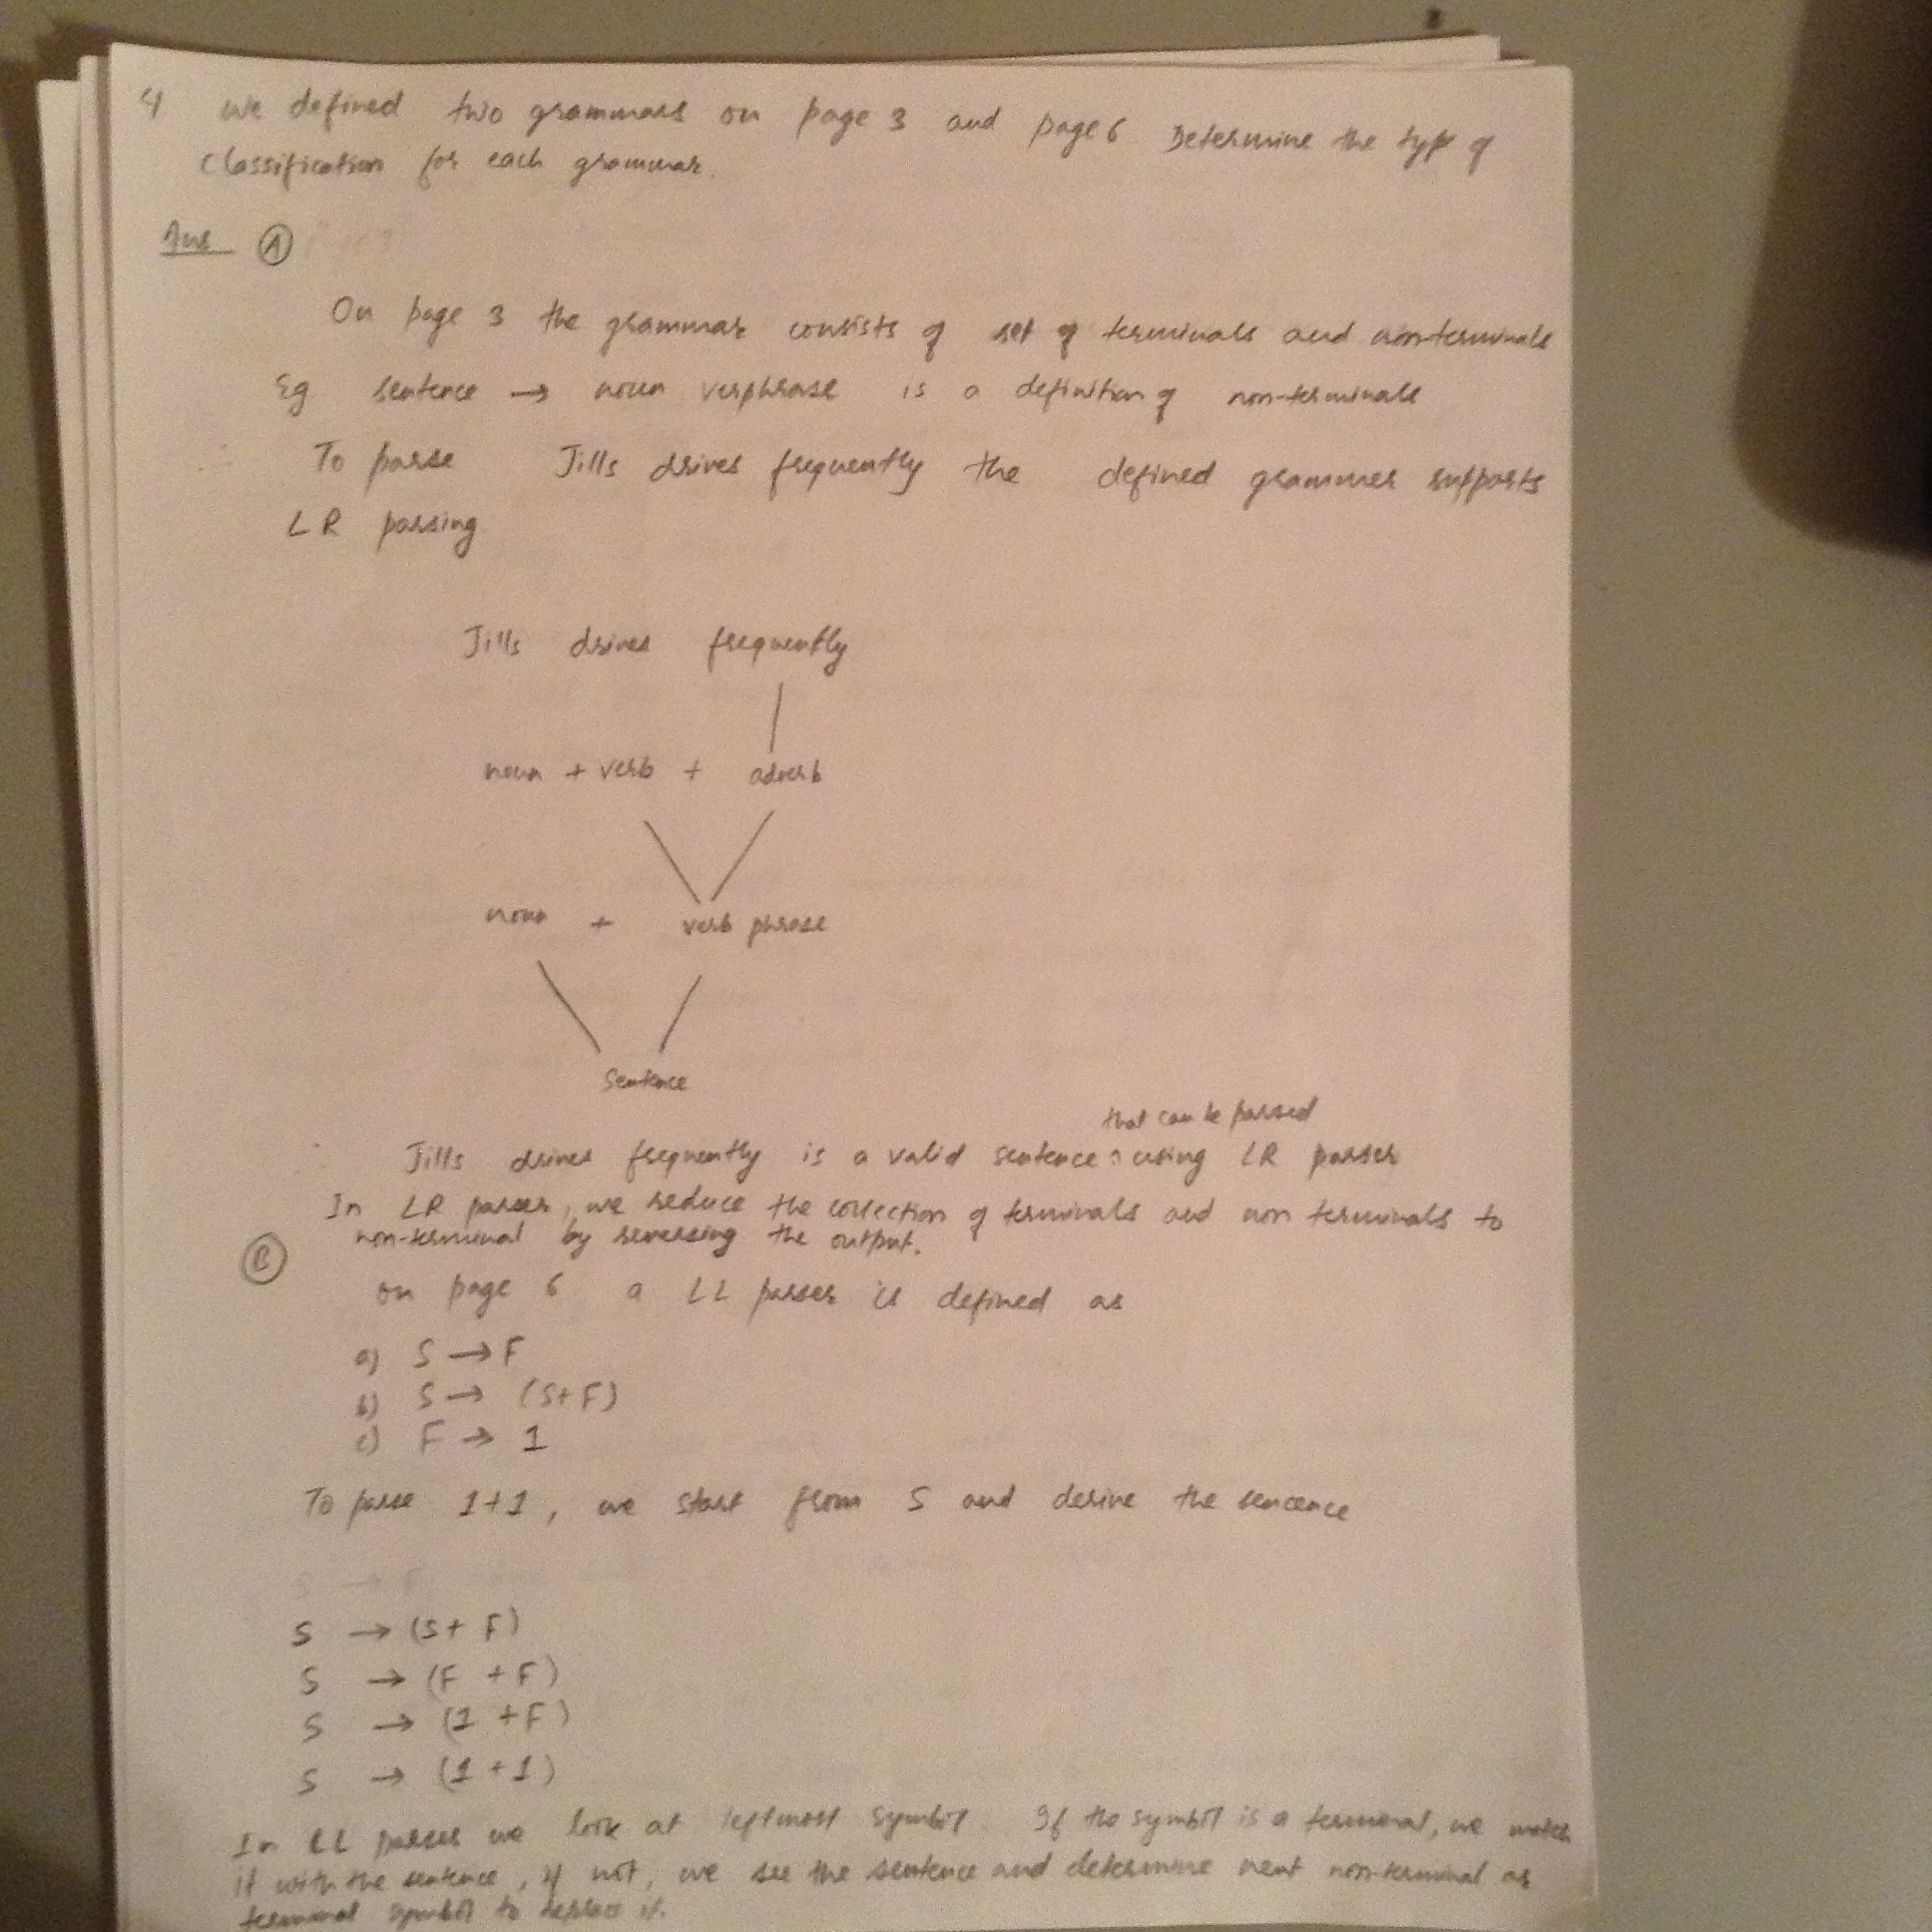 4 We defined two grammars on page 3 and page 6 Determine the type of
classification for each grammar.
Ans A
On page 3 the grammar consists of set of terminals and non-terminals
Eg sentence → noun verphrase is a definition of non-terminals
To parse Jills drives frequently the defined grammer supports
LR parsing
Jills drives frequently
noun + verb + adverb
noun + verb phrase
Sentence
that can be parsed
Jills drives frequently is a valid sentence using LR parser
In LR parser, we reduce the collection of terminals and non terminals to
non-terminal by reversing the output.
B
on page 6 a LL parser is defined as
a) S → F
b) S → (S+F)
c) F → 1
To parse 1+1, we start from S and derive the sencence
S → (S+ F)
S → (F +F)
S → (1 +F)
S → (1 +1)
In LL parser we look at leftmost symbol. If the symbol is a terminal, we match
it with the sentence, if not, we see the sentence and determine next non-terminal or
terminal symbol to replace it.